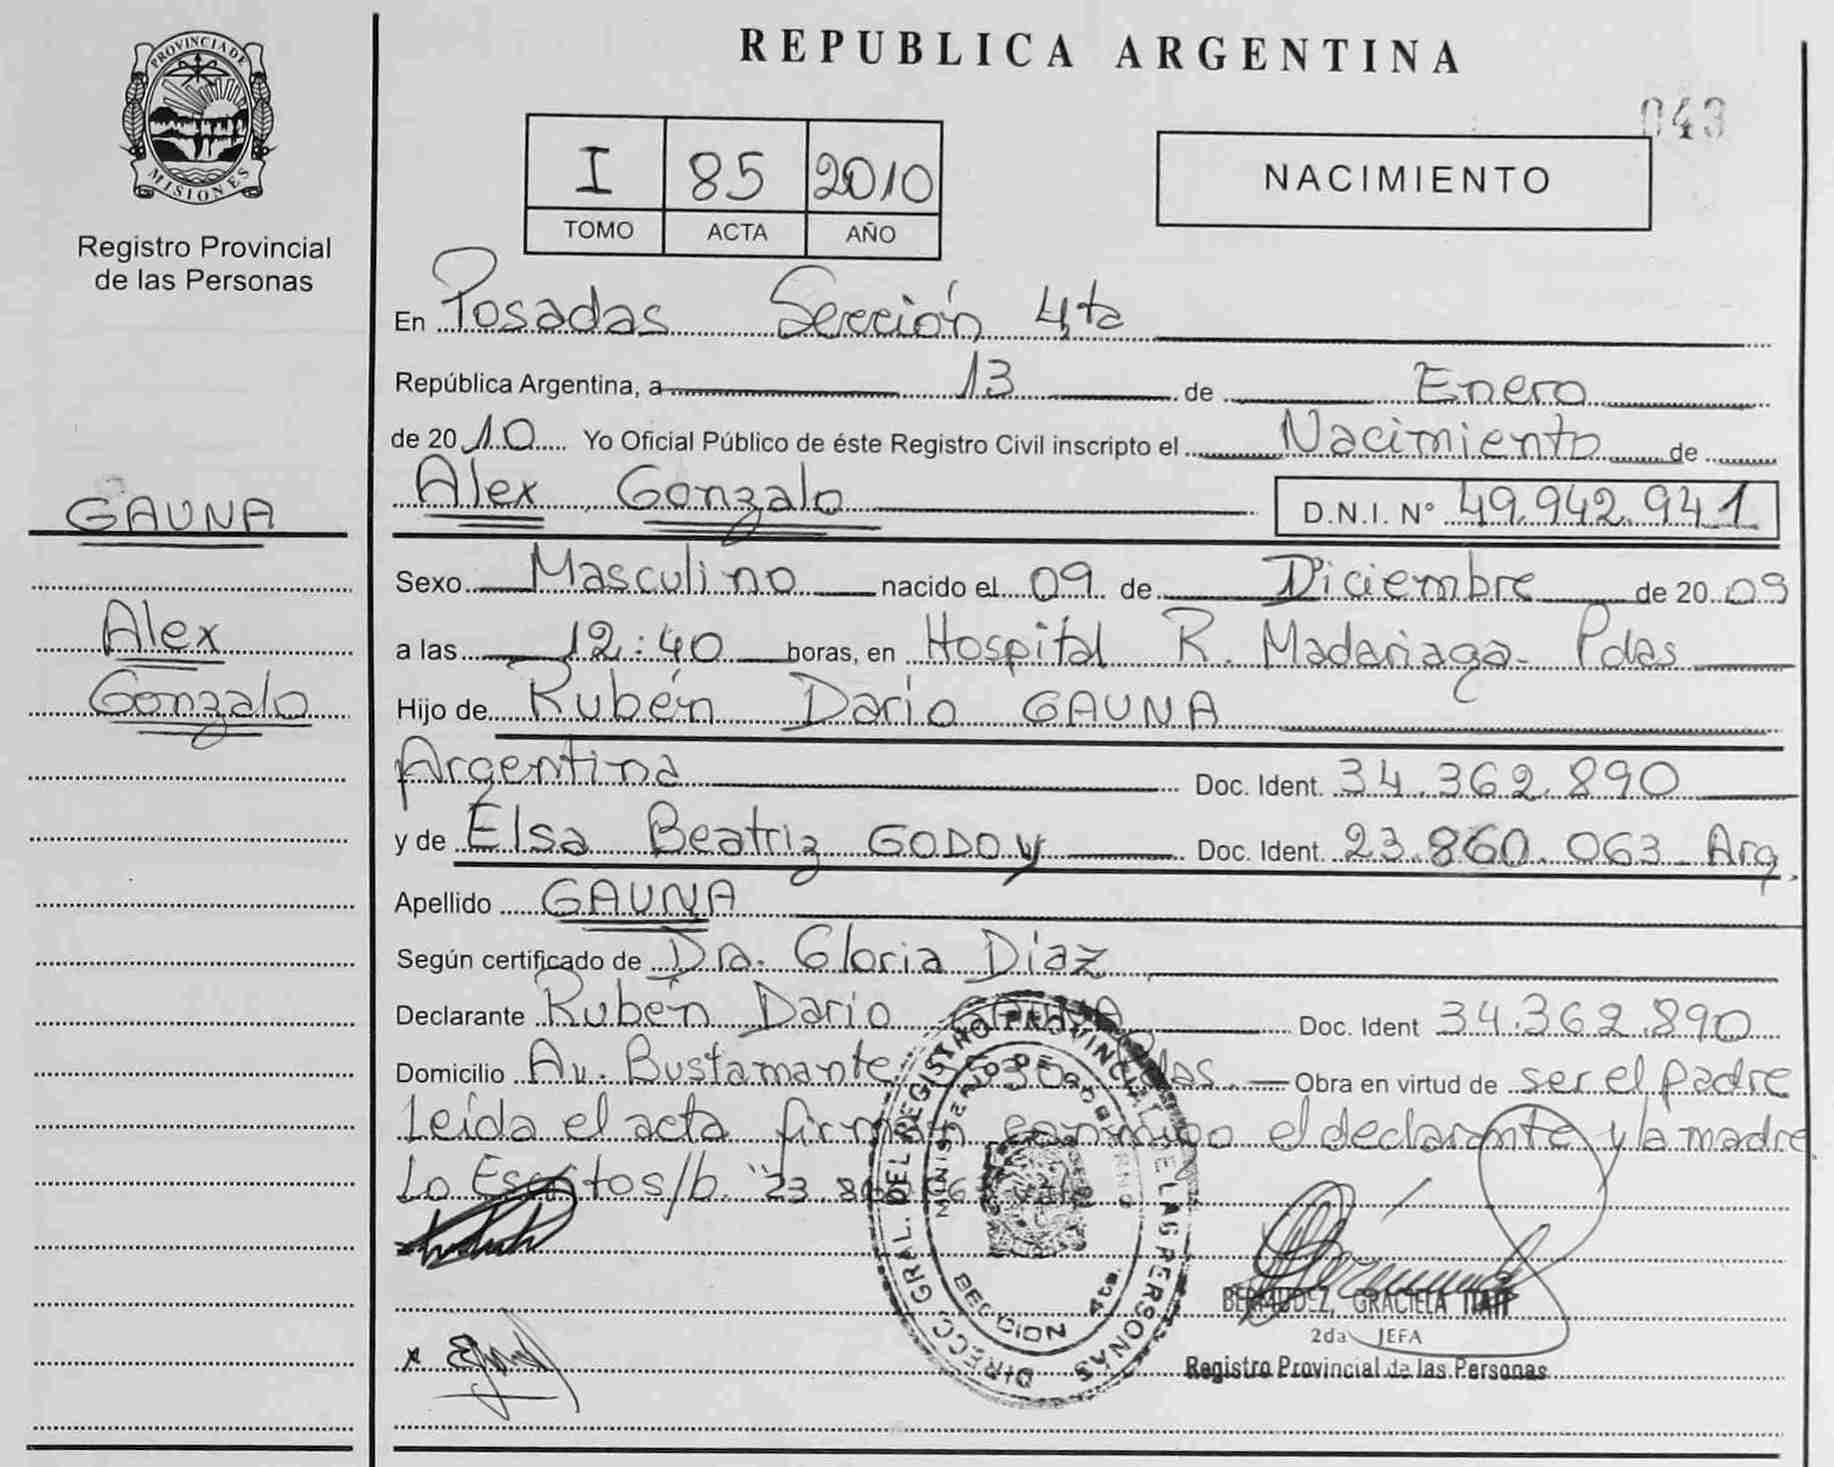 REPUBLICA ARGENTINA
043
PROVINCIA DE
MISIONES
Registro Provincial
de las Personas
I 85 2010
TOMO ACTA AÑO
NACIMIENTO
En Posadas Sección 4ta
República Argentina, a 13 de Enero
de 20 10 Yo Oficial Público de éste Registro Civil inscripto el Nacimiento de
Alex Gonzalo D.N.I. N° 49.942.941
GAUNA
Alex
Gonzalo
Sexo Masculino nacido el 09 de Diciembre de 20 09
a las 12:40 horas, en Hospital R. Madariaga - Pdas
Hijo de Rubén Dario GAUNA
Argentina Doc. Ident. 34.362.890
y de Elsa Beatriz GODOY Doc. Ident. 23.860.063 - Arg.
Apellido GAUNA
Según certificado de Dra. Gloria Díaz
Declarante Rubén Dario GAUNA Doc. Ident 34.362.890
Domicilio Av. Bustamante Pdas. Obra en virtud de ser el padre
Leída el acta firman conmigo el declarante y la madre
Lo Escritos/b. "23.860.063" vale
DIRECC. GRAL. DEL REGISTRO PROVINCIAL DE LAS PERSONAS
MINISTERIO DE GOBIERNO
SECCION 4ta.
BERMUDEZ, GRACIELA ITATI
2da JEFA
Registro Provincial de las Personas